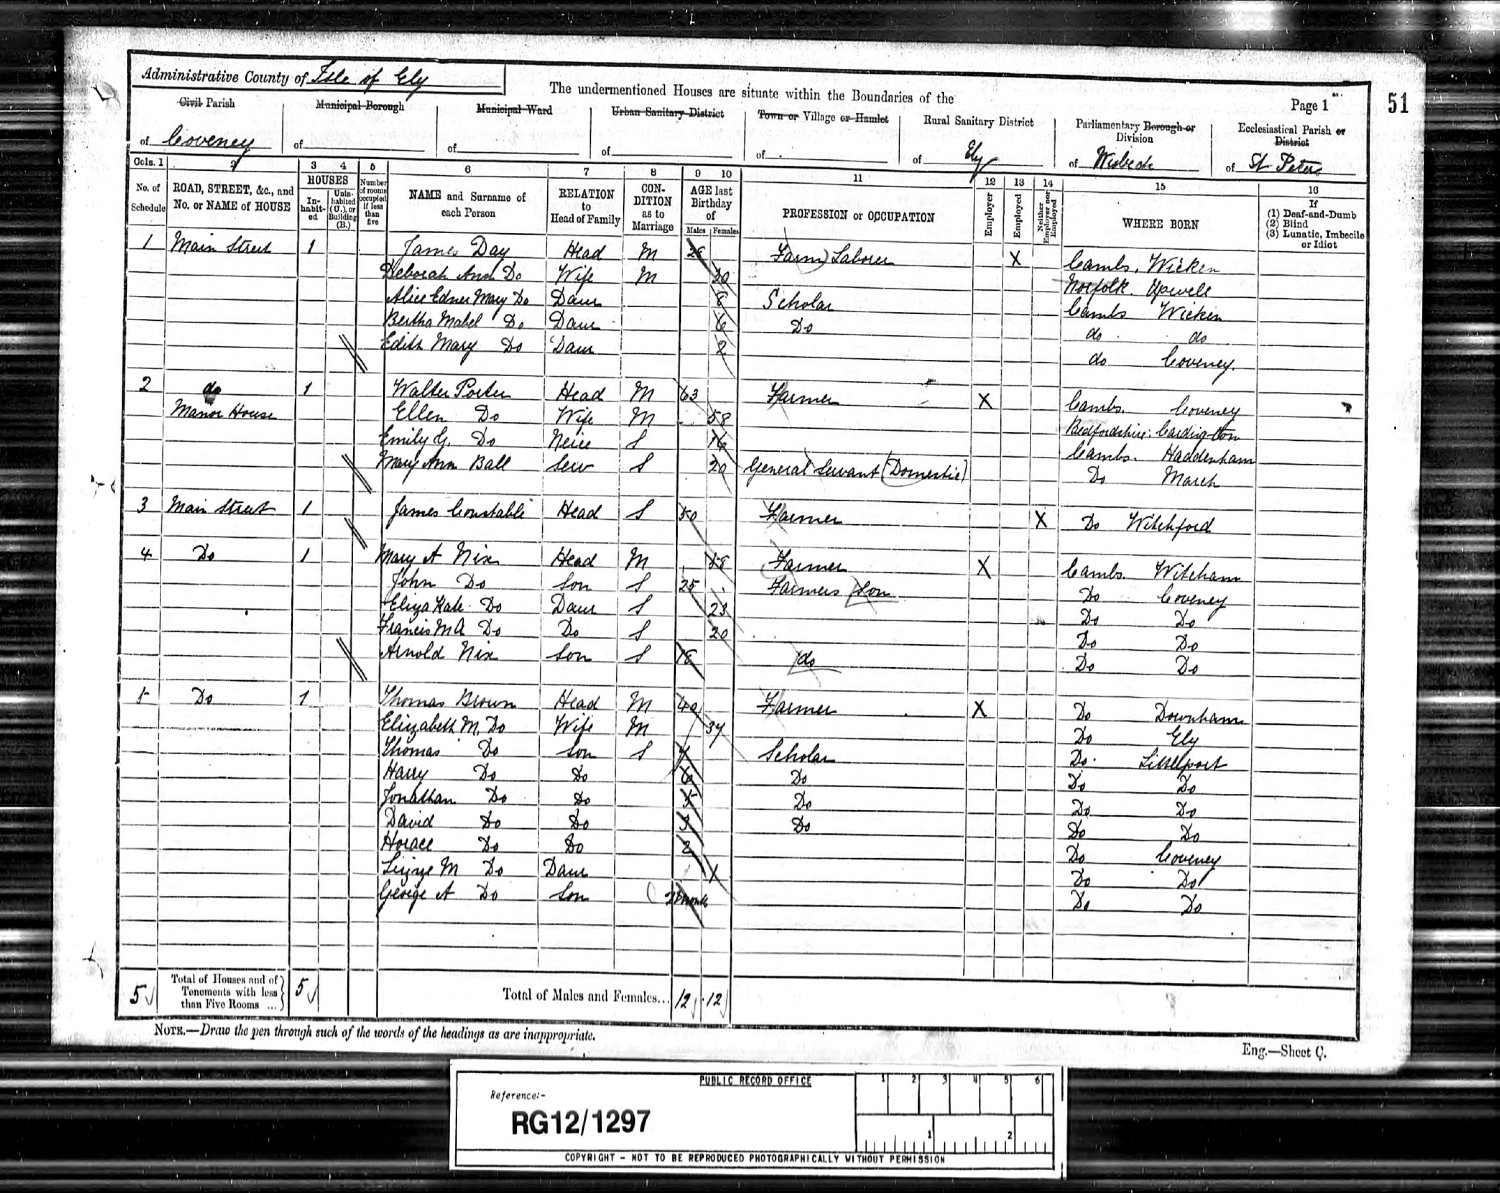 Administrative County of Isle of Ely
The undermentioned Houses are situate within the Boundaries of the
Page 1
51
Civil Parish of Coveney
Municipal Borough of
Municipal Ward of
Urban Sanitary District of
Town or Village or Hamlet of
Rural Sanitary District of Ely
Parliamentary Borough or Division of Wisbech
Ecclesiastical Parish or District of St Peters
Cols. 1 2 3 4 5 6 7 8 9 10 11 12 13 14 15 16
No. of Schedule
ROAD, STREET, &c., and No. or NAME of HOUSE
HOUSES
Inhabited
Uninhabited (U.), or Building (B.)
Number of rooms occupied if less than five
NAME and Surname of each Person
RELATION to Head of Family
CONDITION as to Marriage
AGE last Birthday of
Males Females
PROFESSION or OCCUPATION
Employer
Employed
Neither Employer nor Employed
WHERE BORN
If
(1) Deaf-and-Dumb
(2) Blind
(3) Lunatic, Imbecile or Idiot
1 Main Street 1 James Day Head M 28 Farm Laborer X Cambs. Wicken
Deborah Ann Do Wife M 30 Norfolk Upwell
Alice Edner Mary Do Daur 8 Scholar Cambs Wicken
Bertha Mabel Do Daur 6 Do do do
Edith Mary Do Daur 2 do Coveney
2 do 1 Walter Porter Head M 63 Farmer X Cambs. Coveney
Manor House Ellen Do Wife M 58 Bedfordshire Cardington
Emily G. Do Neice S 16 Cambs. Haddenham
Mary Ann Ball Serv S 20 General Servant (Domestic) Do March
3 Main Street 1 James Constable Head S 50 Farmer X Do Witchford
4 Do 1 Mary A Nix Head M 58 Farmer X Cambs. Witcham
John Do Son S 25 Farmers Son Do Coveney
Eliza Kate Do Daur S 23 Do Do
Francis M A Do Do S 20 Do Do
Arnold Nix Son S 18 do Do Do
5 Do 1 Thomas Brown Head M 40 Farmer X Do Downham
Elizabeth M. Do Wife M 37 Do Ely
Thomas Do Son S Scholar Do Littleport
Harry Do Do 6 Do Do Do
Jonathan Do Do 5 Do Do Do
David Do Do Do Do Do
Horace Do Do Do Coveney
Lizzye M Do Daur 1 Do Do
George A Do Son 2 months Do Do
5 Total of Houses and of Tenements with less than Five Rooms ... 5 Total of Males and Females... 12 12
NOTE.—Draw the pen through such of the words of the headings as are inappropriate.
Eng.—Sheet C.
PUBLIC RECORD OFFICE
1 2 3 4 5 6
Reference:-
RG12/1297
1 2
COPYRIGHT - NOT TO BE REPRODUCED PHOTOGRAPHICALLY WITHOUT PERMISSION